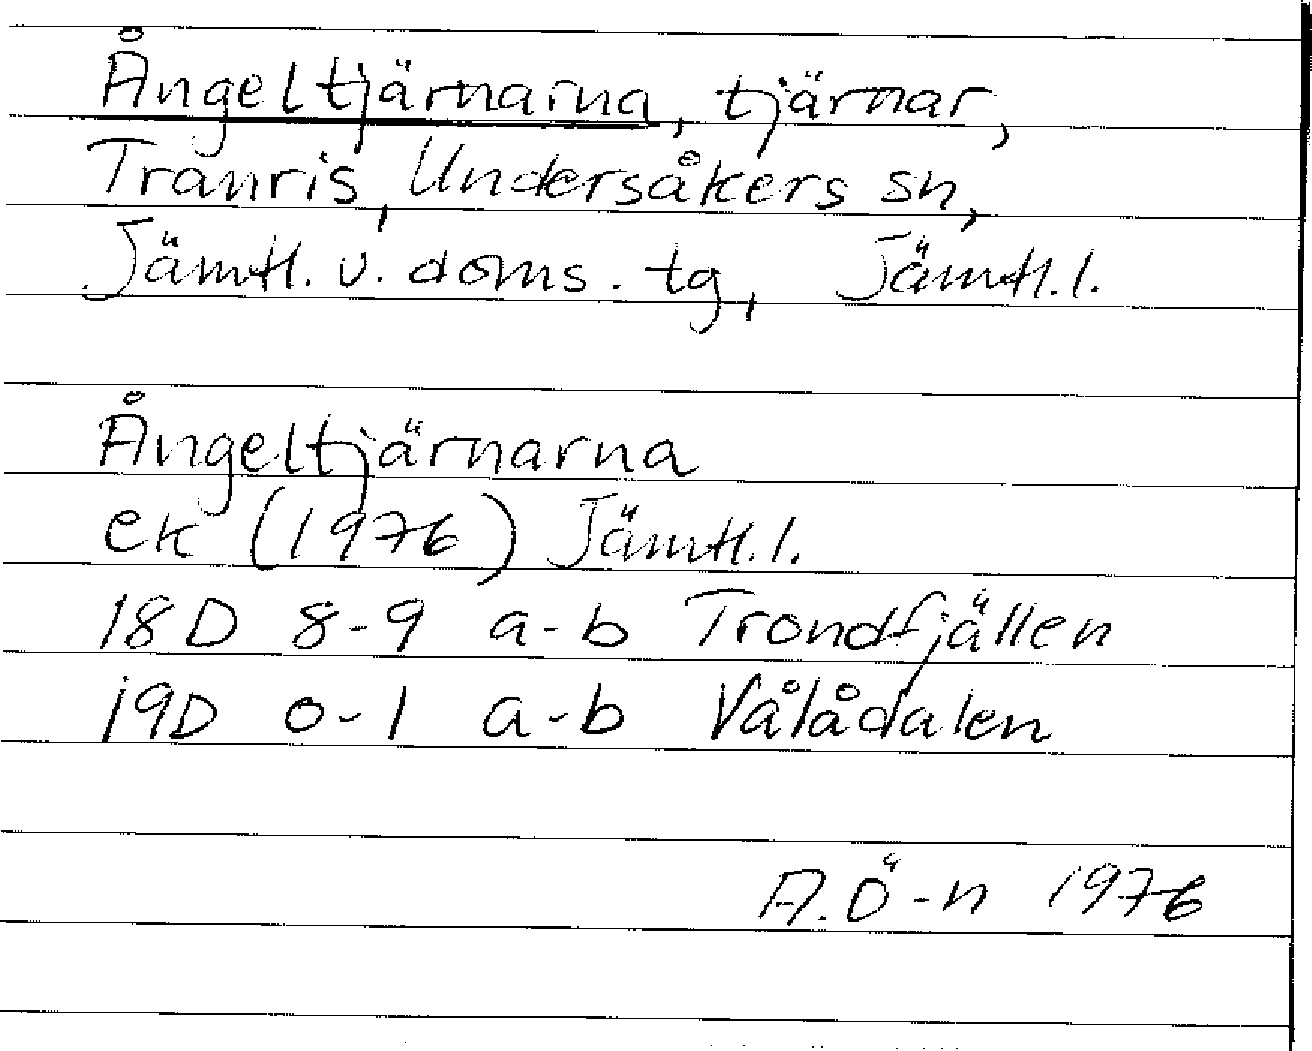 Ångeltjärnarna, tjärnar,
Tranris, Undersåkers sn,
Jämtl. v. doms. tg, Jämtl. l.
Ångeltjärnarna
ek (1976) Jämtl. l.
18D 8-9 a-b Trondfjällen
19D 0-1 a-b Vålådalen
A. Ö-n 1976